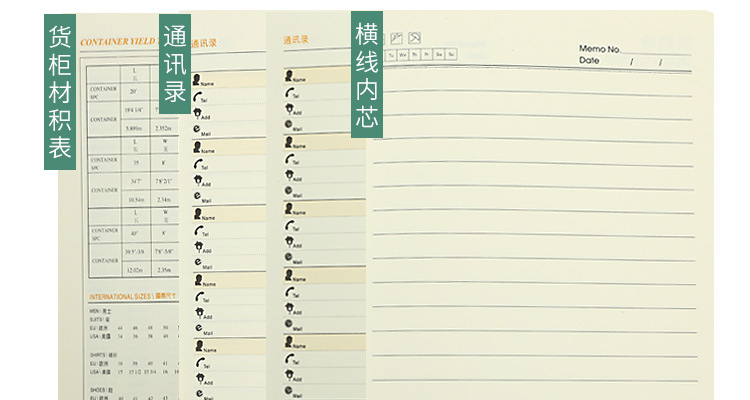 货柜材积表
通讯录
横线内芯
CONTAINER YIELD
L
长
CONTAINER SPC 20'
CONTAINER 19'4 1/4"
5.899m 2.352m
L W
长 宽
CONTAINER SPC 35 8'
CONTAINER 34'7" 7'8"2/1"
10.54m 2.34m
L W
长 宽
CONTAINER SPC 40" 8'
CONTAINER 39'5"-3/8 7'8"-5/8"
12.02m 2.35m
INTERNATIONAL SIZES \ 國際尺寸
MEN \ 男士
SUITS \ 裝
EU \ 歐洲 44 46 48 50
USA \ 美國 34 36 38 40
SHIRTS \ 襯衫
EU \ 歐洲 38 39 40 41
USA \ 美國 15 15 1/2 15 3/4 16
SHOES \ 鞋
EU \ 歐洲 40 41 42 43
通讯录
Name
Tel
Add
Mail
Name
Tel
Add
Mail
Name
Tel
Add
Mail
Name
Tel
Add
Mail
Name
Tel
Add
Mail
通讯录
Name
Tel
Add
Mail
Name
Tel
Add
Mail
Name
Tel
Add
Mail
Name
Tel
Add
Mail
Name
Tel
Add
Mail
Tu We Th Fr Sa Su
Memo No.
Date / /